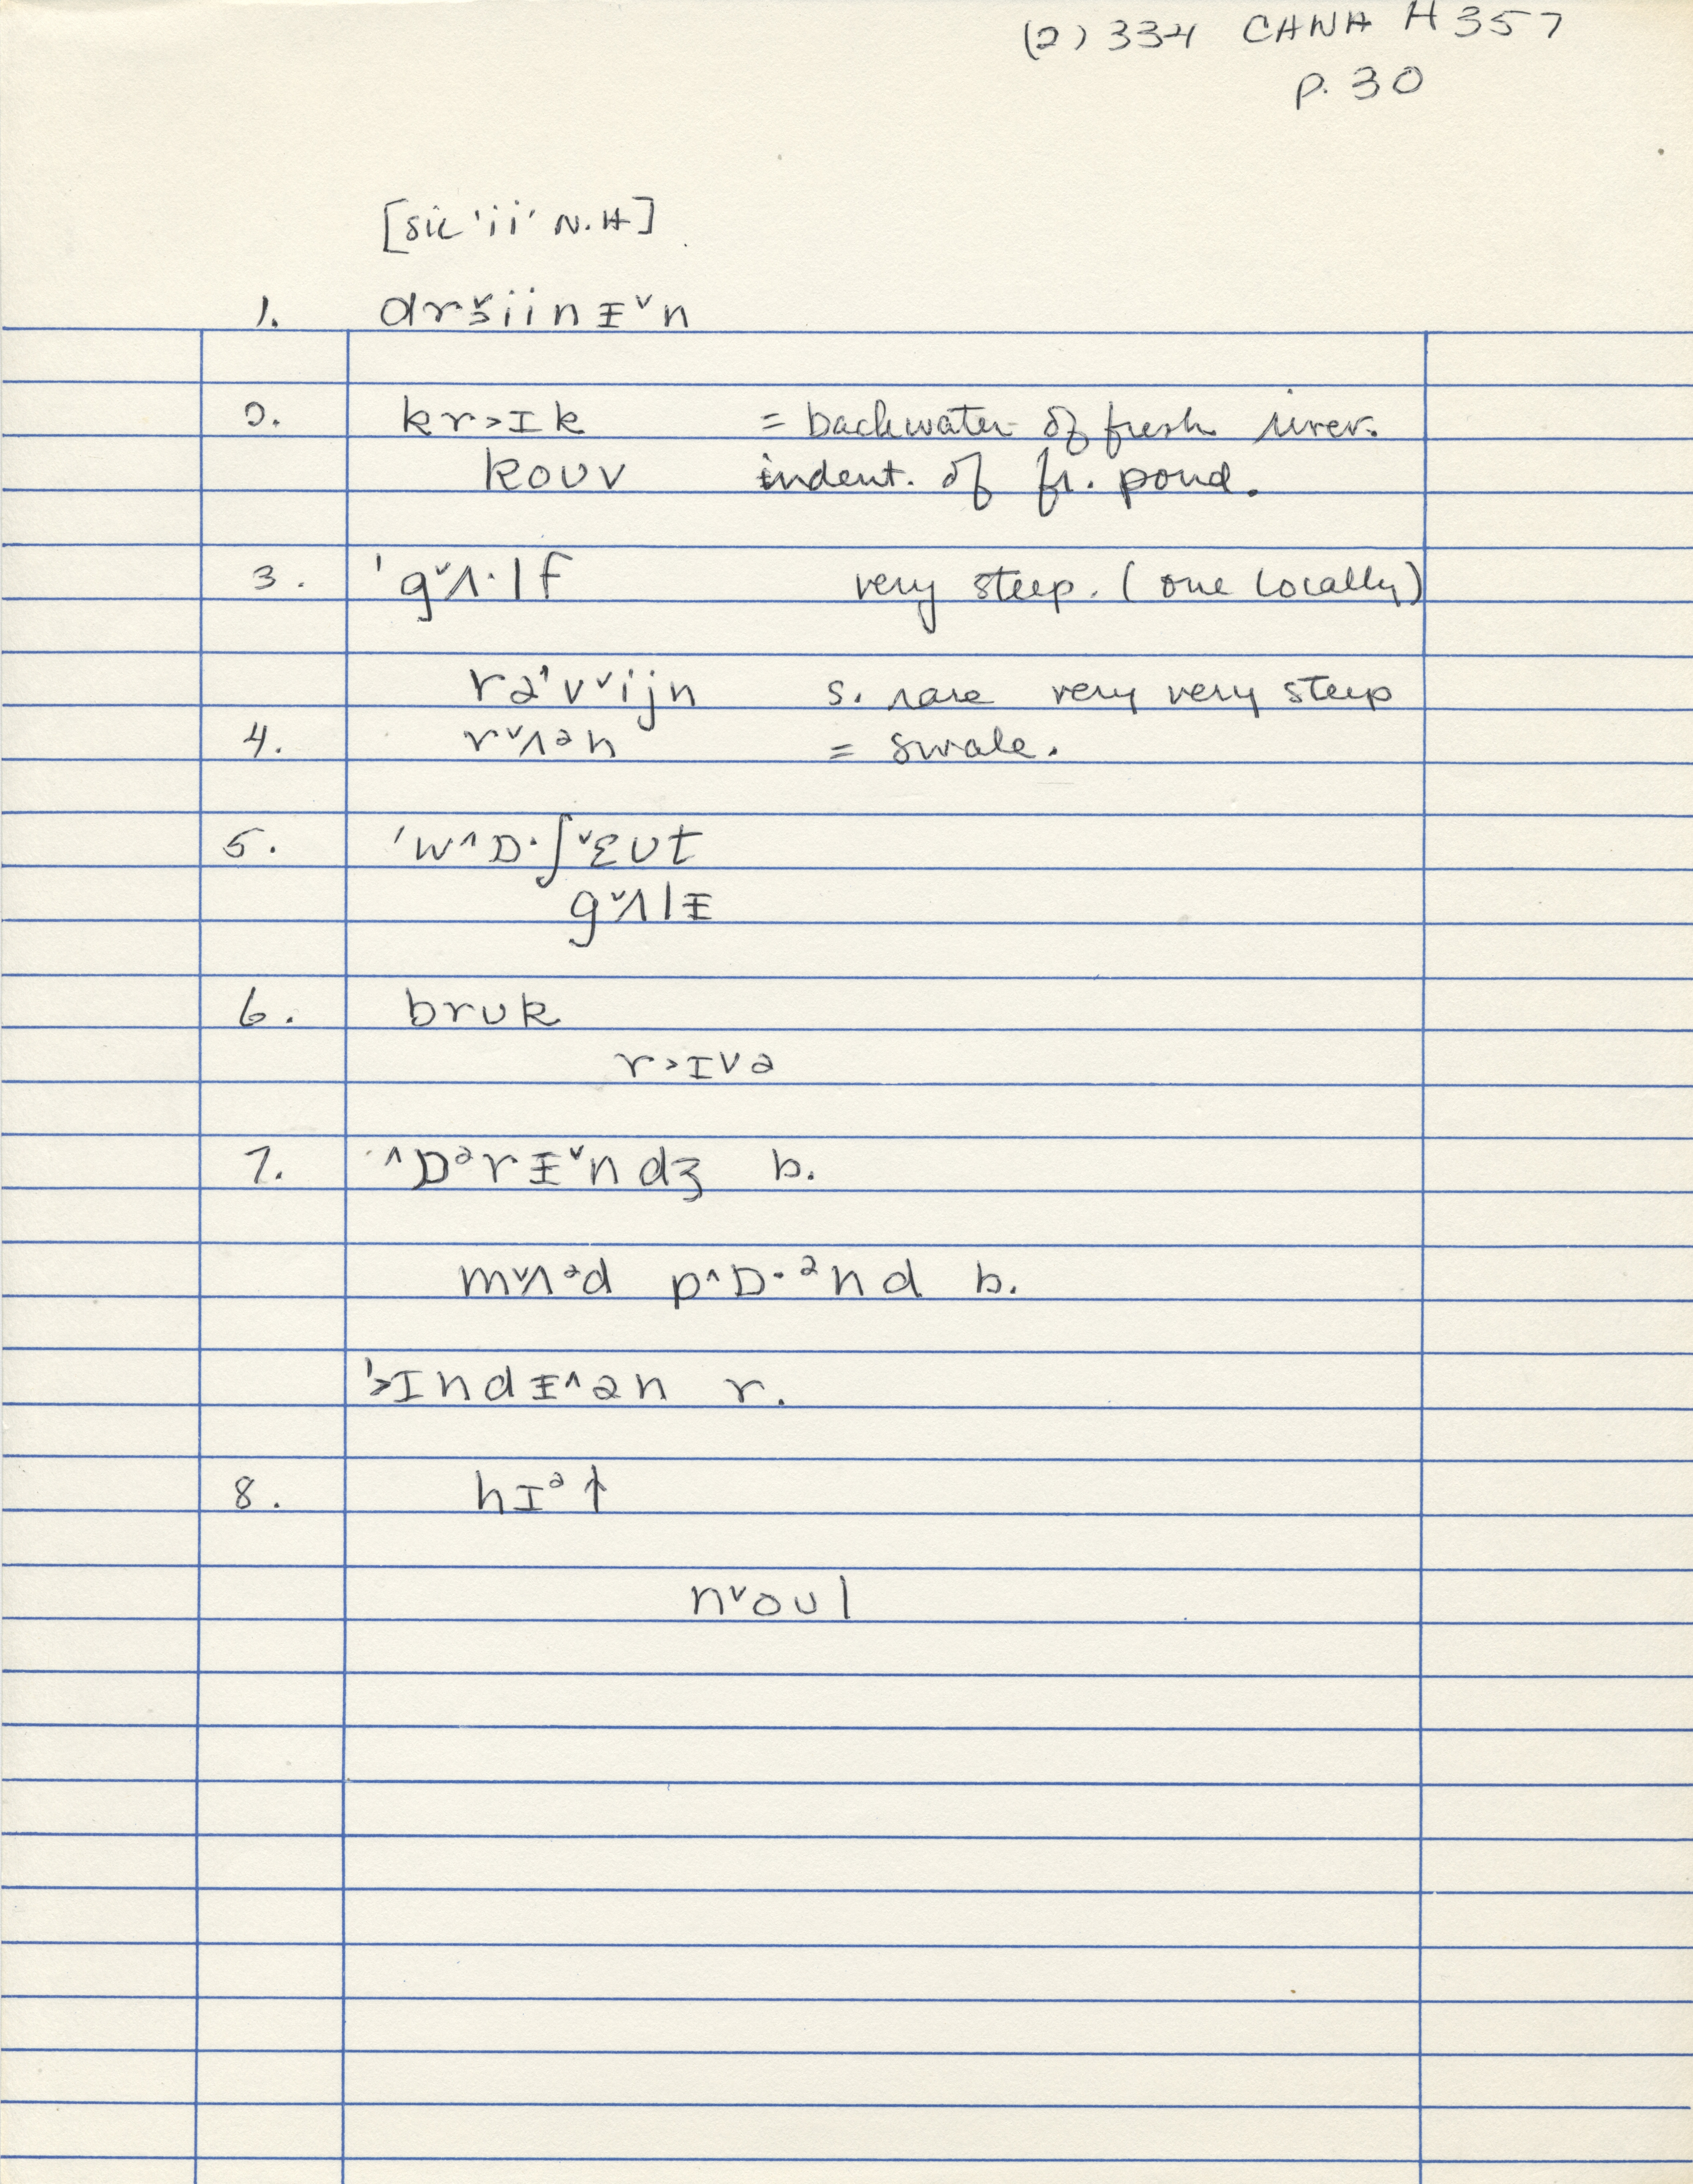 (2) 334 CANA H 357
p. 30
[sic 'ii' N.H]
1. drš̬iinᵻ˅n
2. kr˃ɪk = backwater of fresh river.
kouv indent. of fr. pond.
3. 'g˅ʌ·lf very steep. (one locally)
rə'v˅ijn s. rare very very steep
4. r˅ʌən = swale.
5. 'w^ɒ·ʃ˅ɛut
g˅ʌlᵻ
6. bruk
r˃ɪvə
7. '^ɒᵊrᵻ˅ndʒ b.
m˅ʌᵊd p^ɒ·ᵊnd b.
'˃ɪndᵻ^ən r.
8. hɪᵊ↑
n˅oul